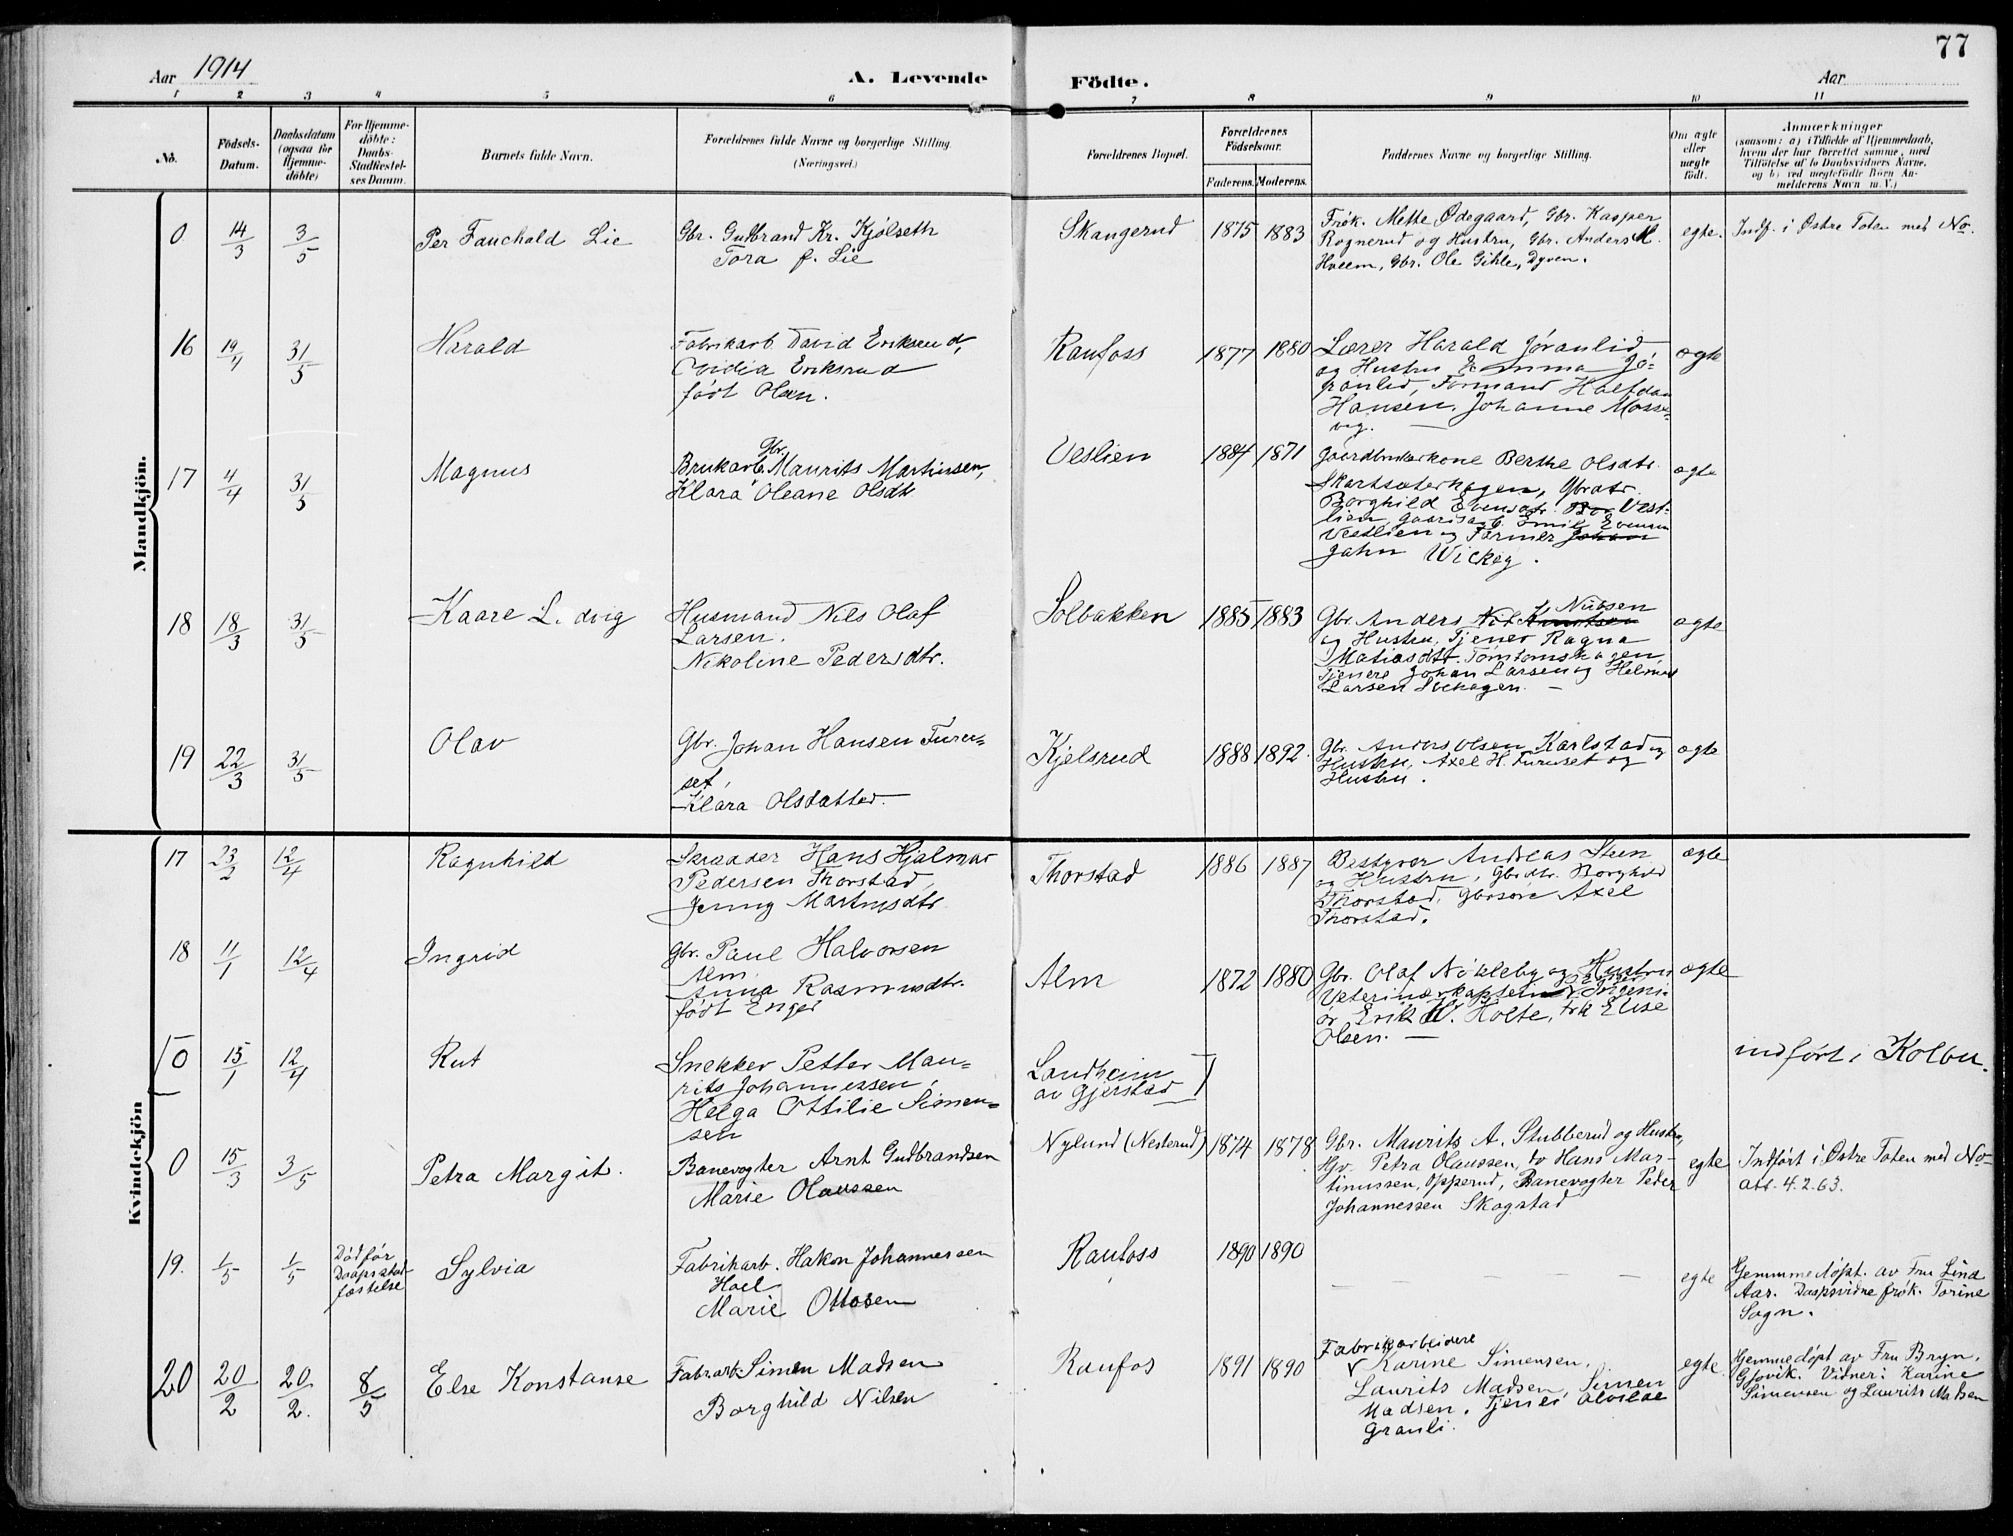 77
Aar 1914
A. Levende Födte.
Aar
1 2 3 4 5 6 7 8 9 10 11
No.
Födsels-
Datum.
Daabsdatum
(ogsaa for
Hjemme-
döbte)
For Hjemme-
döbte:
Daabs-
Stadfæstel-
ses Datum.
Barnets fulde Navn.
Forældrenes fulde Navne og borgerlige Stilling.
(Næringsvei.)
Forældrenes Bopæl.
Forældrenes
Födselsaar.
Faderens. Moderens.
Faddernes Navne og borgerlige Stilling.
Om ægte
eller
uægte
födt.
Anmærkninger
(saasom: a) i Tilfælde af Hjemmedaab,
hvem der har forrettet samme, med
Tilföielse af to Daabsvidners Navne,
og b) ved uægtefödte Börn An-
melderens Navn m. V.)
Mandkjön.
0 14/3 3/5 Per Fauchald Lie
Gbr. Gudbrand Kr. Kjölseth
Tora f. Lie
Skangerud 1875 1883
Frøk. Mette Ødegaard, Gbr. Kasper
Rognerud og Hustru, Gbr. Anders M.
Hveem, Gbr. Ole Gihle, Dyven.
egte. Indf. i Østre Toten med No.
16 19/11 31/5 Harald
Fabrikarb David Eriksrud,
Ovidia Eriksrud
født Olsen.
Raufoss 1877 1880
Lærer Harald Jøranlid
og Hustru Emma Jö-
ranlid, Formand Halfdan
Hansen, Johanne Mosse-
vig.
ægte
17 4/4 31/5 Magnus
Gbr.
Brukarb. Maurits Martinsen,
Klara Oleane Olsdt
Veslien 1884 1871
Gaardbrukerkone Berthe Olsdtr.
Skartsæterhagen, Gbrdtr.
Borghild Evensdtr. Vest-
lien, Gaardsarb. Emil Evensen
Vestlien og Farmer Johan
John Wickeg.
ægte
18 18/3 31/5 Kaare L. dvig
Husmand Nils Olaf
Larsen.
Nikoline Pedersdtr.
Solbakken 1885 1883
Nilssen
Gbr. Anders Knutsen
og Hustru, Tjener Ragna
Matiasdtr. Tömtomshagen,
Tjenere Johan Larsen og Helmer
Larsen
ægte
19 22/3 31/5 Olav
Gbr. Johan Hansen Furu-
set,
Klara Olsdatter.
Kjelsrud 1888 1892.
Gbr. Anders Olsen Karlstad og
Hustru, Axel H. Furuset og
Hustru.
ægte
Kvindekjön
17 23/2 12/4 Ragnhild
Skrædder Hans Hjalmar
Pedersen Thorstad,
Jenny Martinsdtr
Thorstad 1886 1887
Bestyrer Andreas Steen
og Hustru, Gbrdtr. Borghild
Thorstad, Gbrsøn Axel
Thorstad.
ægte
18 11/1 12/4 Ingrid
Gbr. Paul Halvorsen
Alm
Anna Rasmusdtr.
født Enger
Alm 1872 1880
Gbr. Olaf Nökleby og Hustru
Veterinærkaptein Ingeni-
ör Erik W. Holte, frk Elise
Olsen.
ægte
0 15/1 12/4 Rut
Snekker Petter Mau-
rits Johannessen,
Helga Ottilie Simen-
sen
Landheim
av Gjerstad
indført i Kolbu.
0 15/3 3/5 Petra Margit.
Banevogter Arnt Gudbrandsen
Marie Olaussen
Nylund (Nesterud) 1874 1878
Gbr. Maurits A. Stubberud og Hustru,
Hjv. Petra Olaussen, do Hans Mar-
tinussen, Opperud, Banevogter Peder
Johannessen Skogstad
egte Indført i Østre Toten med No
att. 4.2.63.
19. 1/5 1/5
Död før
Daapsstad-
festelse
Sylvia
Fabrikarb. Hakon Johannessen
Hoel
Marie Ottosen
Raufoss 1890 1890
— — — — —
egte
Hjemmedøpt. av Fru Lind
Aas. Daapsvidne frøk. Torine
Sogn.
20 20/2 20/2. 8/5 Else Konstanse
Fabrark Simen Madsen
Borghild Nilsen
Raufos 1891 1890
Fabrikarbeidere
Karine Simensen,
Laurits Madsen, Simen
Madsen. Tjener
Granli.
egte.
Hjemmedöpt av Fru Bryn,
Gjøvik. Vidner: Karine
Simensen og Laurits Madsen